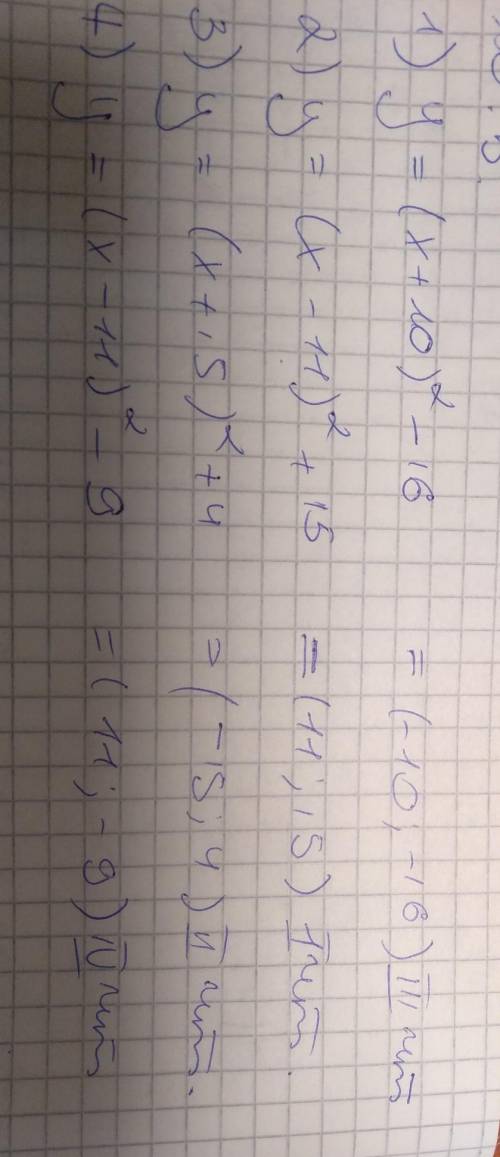 1) y = (x+10)² - 16 = (-10; -16) III чт
2) y = (x - 11)² + 15 = (11; 15) I чт.
3) y = (x+15)² + 4 = (-15; 4) II чт.
4) y = (x - 11)² - 9 = (11; -9) IV чт